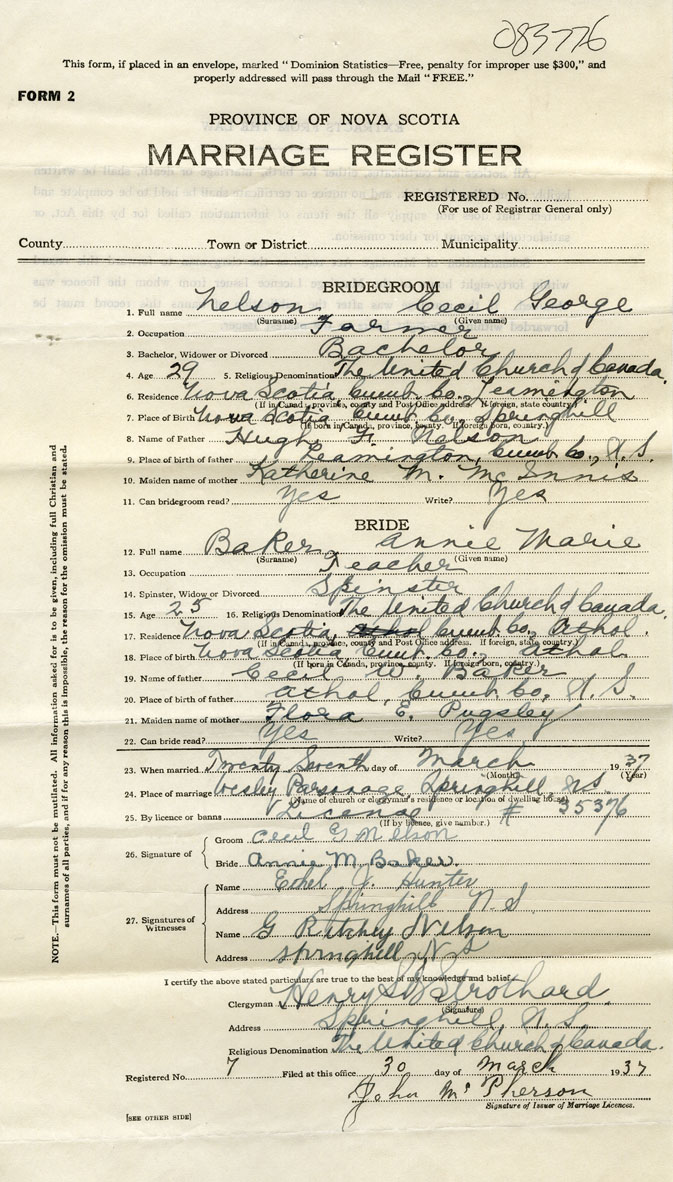 083776
This form, if placed in an envelope, marked "Dominion Statistics—Free, penalty for improper use $300," and
properly addressed will pass through the Mail "FREE."
FORM 2
PROVINCE OF NOVA SCOTIA
MARRIAGE REGISTER
REGISTERED No.
(For use of Registrar General only)
County Town or District Municipality
BRIDEGROOM
1. Full name Nelson Cecil George
(Surname) (Given name)
2. Occupation Farmer
3. Bachelor, Widower or Divorced Bachelor
4. Age 29 5. Religious Denomination The United Church of Canada.
6. Residence Nova Scotia, Cumb. Co., Leamington
(If in Canada, province, county and Post Office address. If foreign, state country.)
7. Place of Birth Nova Scotia Cumb. Co., Springhill
(If born in Canada, province, county. If foreign born, country.)
8. Name of Father Hugh F. Nelson
9. Place of birth of father Leamington, Cumb. Co., N. S.
10. Maiden name of mother Katherine M. McInnis
11. Can bridegroom read? Yes Write? Yes
BRIDE
12. Full name Baker, Annie Marie
(Surname) (Given name)
13. Occupation Teacher
14. Spinster, Widow or Divorced Spinster
15. Age 25 16. Religious Denomination The United Church of Canada.
17. Residence Nova Scotia, Cumb. Co., Athol.
(If in Canada, province, county and Post Office address. If foreign, state country.)
18. Place of birth Nova Scotia Cumb. Co., Athol.
(If born in Canada, province, county. If foreign born, country.)
19. Name of father Cecil W. Baker
20. Place of birth of father Athol, Cumb. Co., N. S.
21. Maiden name of mother Flora E. Pugsley
22. Can bride read? Yes Write? Yes
23. When married Twenty Seventh day of March 1937
(Month) (Year)
24. Place of marriage Wesley Parsonage, Springhill, N.S.
(Name of church or clergyman's residence or location of dwelling house)
25. By licence or banns License # 35376
(If by licence, give number.)
26. Signature of
Groom Cecil G Nelson
Bride Annie M. Baker.
27. Signatures of Witnesses
Name J. Hunter
Address Springhill N.S
Name G Ritchey Nelson
Address Springhill N S
I certify the above stated particulars are true to the best of my knowledge and belief.
Clergyman Henry Strothard
(Signature)
Address Springhill, N. S.
Religious Denomination The United Church of Canada.
Registered No. 7 Filed at this office 30 day of March 1937
John McPherson
Signature of Issuer of Marriage Licences.
[SEE OTHER SIDE]
NOTE.—This form must not be mutilated. All information asked for is to be given, including full Christian and
surnames of all parties, and if for any reason this is impossible, the reason for the omission must be stated.